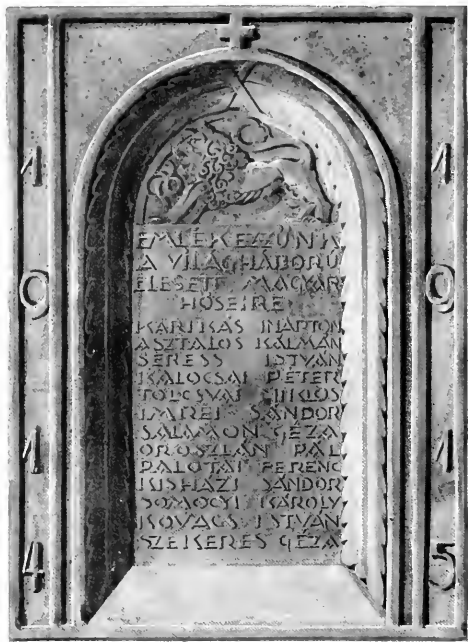 1
9
1
4
EMLÉKEZZÜNK
A VILÁGHÁBORÚ
ELESETT MAGYAR
HŐSEIRE
KARIKÁS MÁRTON
ASZTALOS KÁLMÁN
SERESS ISTVÁN
KALOCSAI PÉTER
TOLCSVAI MIKLÓS
IMREI SÁNDOR
SALAMON GÉZA
OROSZLÁN PÁL
PALOTAI FERENC
KISHÁZI SÁNDOR
SOMOGYI KÁROLY
KOVÁCS ISTVÁN
SZEKERES GÉZA
1
9
1
5